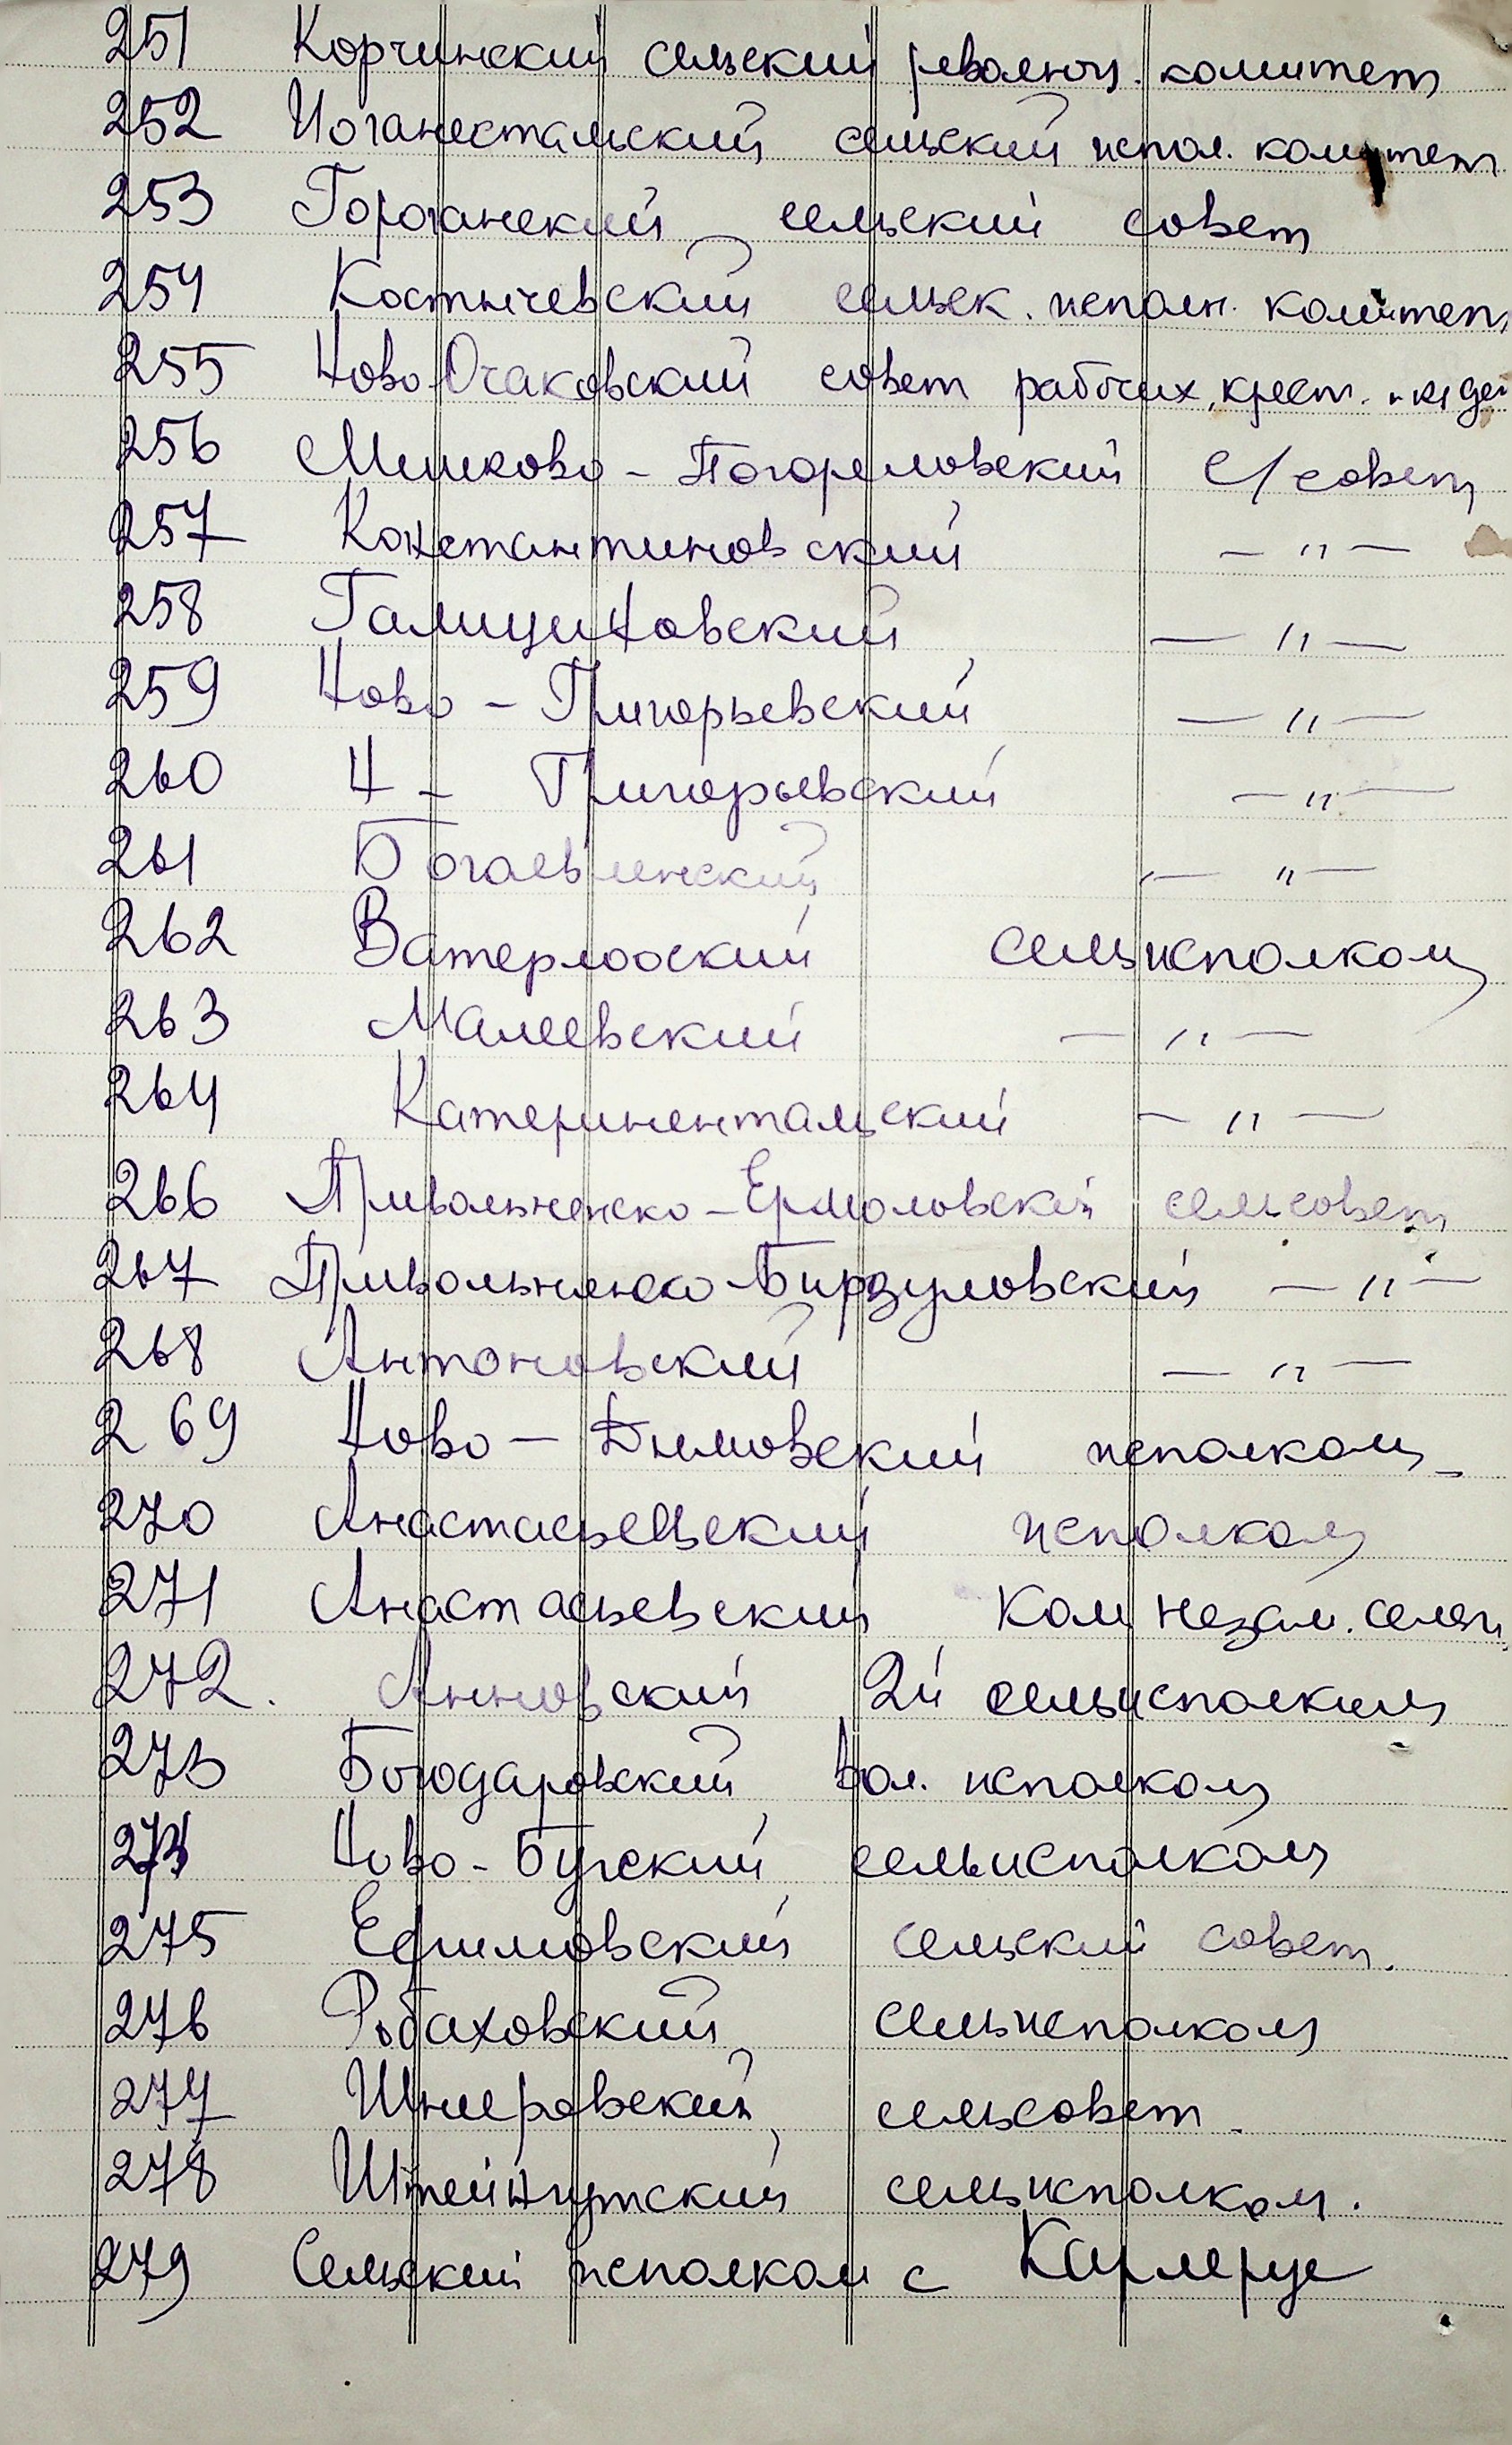 251 Корчинский сельский революц. комитет
252 Иоганестальский сельский испол. комитет
253 Горожанский сельский совет
254 Костычевский сельск. исполн. комитет
255 Ново-Очаковский совет рабочих, крест. и кр де
256 Мешково-Погореловский С/совет
257 Константиновский — " —
258 Галициновский — " —
259 Ново-Григорьевский — " —
260 Н-Григорьевский — " —
261 Богоявленский — " —
262 Ватерлооский сельисполком
263 Малеевский — " —
264 Катеринентальский — " —
266 Привольненско-Ермоловский сельсовет
267 Привольненско-Бирзуловский — " —
268 Антоновский — " —
269 Ново-Дымовский исполком
270 Анастасьевский исполком
271 Анастасьевский Ком незам. селян
272. Анновский 2й сельисполком
273 Богодаровский вол. исполком
274 Ново-Бугский сельисполком
275 Ефимовский сельский совет.
276 Рыбаховский сельисполком
277 сельсовет
278 сельисполком.
279 Сельский исполком с Карлсруе